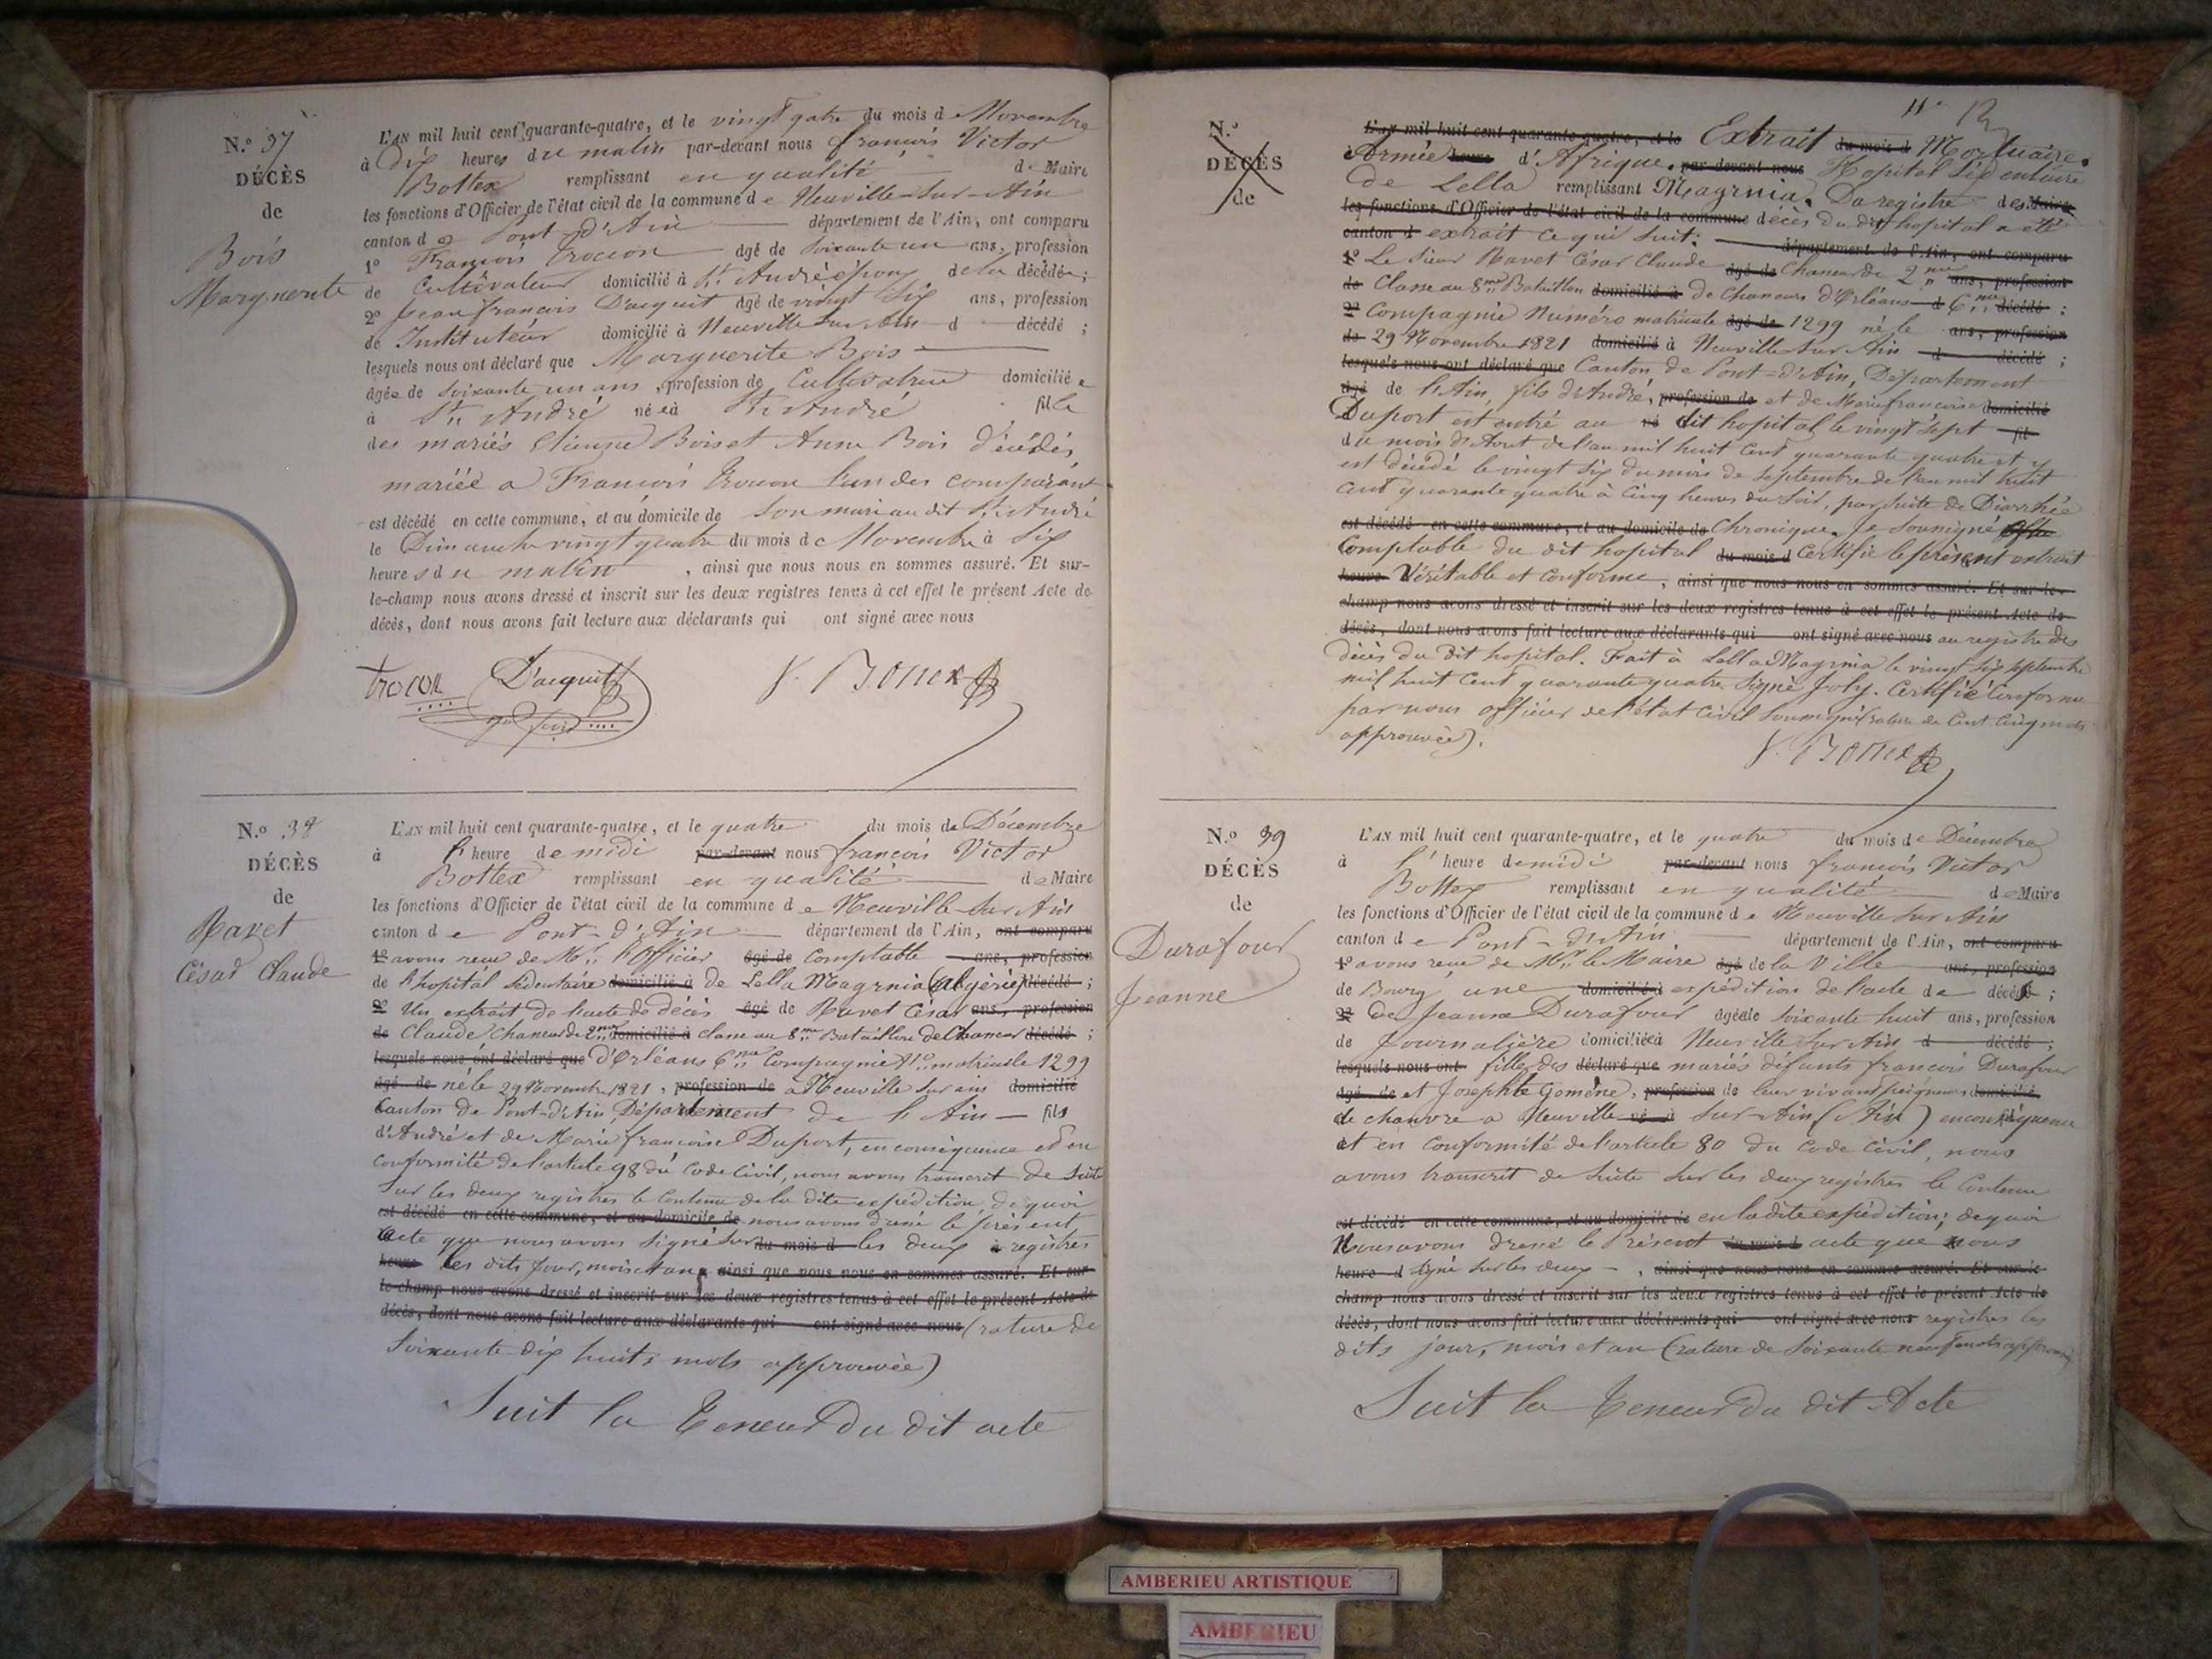 N.o 37
DÉCÈS
de
Bois
Marguerite
L'AN mil huit cent quarante-quatre, et le vingt qatre du mois de Novembre
à Dix heures du matin par-devant nous françois Victor
Bottex remplissant en qualité de Maire
les fonctions d'Officier de l'état civil de la commune de Neuville-sur-Ain
canton de Pont-d'Ain département de l'Ain, ont comparu
1o François Trocon âgé de soixante un ans, profession
de Cultivateur domicilié à St. André époux de la décédée;
2o Jean françois D'acquit âgé de vingt six ans, profession
de Instituteur domicilié à Neuville sur Ain d décédé;
lesquels nous ont déclaré que Marguerite Bois
âgée de soixante un ans, profession de Cultivatrice domiciliée
à St. André née à St. André fille
des mariés Etienne Bois et Anne Bois Décédés,
mariée a François Trocon l'un des comparant
est décédé en cette commune, et au domicile de son mari au dit St. André
le Dimanche vingt quatre du mois de Novembre à six
heures du matin, ainsi que nous nous en sommes assuré. Et sur-
le-champ nous avons dressé et inscrit sur les deux registres tenus à cet effet le présent Acte de
décès, dont nous avons fait lecture aux déclarants qui ont signé avec nous
trocon D'acquit V. Bottex
N.o 38
DÉCÈS
de
Ravet
César Claude
L'AN mil huit cent quarante-quatre, et le quatre du mois de Décembre
à l'heure de midi par-devant nous françois Victor
Bottex remplissant en qualité de Maire
les fonctions d'Officier de l'état civil de la commune de Neuville-sur Ain
canton de Pont-d'Ain département de l'Ain, ont comparu
1o avons reçu de Mr. l'Officier âgé de Comptable ans, profession
de l'hopital sédentaire domicilié à de Lella Magrnia (algérie) décédé;
2o Un extrait de l'acte de décès âgé de Ravet César ans, profession
de Claude Chasseur de 2me domicilié à classe au 8me Bataillon de Chasseur décédé;
lesquels nous ont déclaré que d'Orléans 6me Compagnie No matricule 1299
âgé de né le 29 Novembre 1821, profession de à Neuville sur ain domicilié
Canton de Pont-d'Ain, Département de l'Ain fils
d'André et de Marie françoise Duport, en conséquence et en
conformité de l'article 98 du Code Civil, nous avons transcrit de suite
sur les deux registres le Contenu de la dite expédition, de quoi
est décédé en cette commune, et au domicile de nous avons dressé le présent
acte que nous avons signé sur du mois d les deux à registres
heure les dits jour, mois et an, ainsi que nous nous en sommes assuré. Et sur
le champ nous avons dressé et inscrit sur les deux registres tenus à cet effet le présent Acte de
décès, dont nous avons fait lecture aux déclarants qui ont signé avec nous (rature de
soixante-dix huit mots approuvée)
Suit la Teneur Du dit acte
12
N.o
DÉCÈS
de
L'AN mil huit cent quarante-quatre, et le Extrait du mois d Mortuaire.
à Armée heure d'Afrique. par-devant nous Hopital Sédentaire
de Lella remplissant Magrnia. Du registre des Maire
les fonctions d'Officier de l'état civil de la commune décès du dit hopital a été
canton d extrait ce qui suit: département de l'Ain, ont comparu
1o Le Sieur Ravet César Claude âgé de Chasseur de 2me ans, profession
de Classe au 8me Bataillon domicilié à De Chasseurs d'Orléans d 6me décédé;
2o Compagnie Numéro matricule âgé de 1299 né le ans, profession
de 29 Novembre 1821 domicilié à Neuville sur Ain d décédé;
lesquels nous ont déclaré que Canton de Pont-d'Ain, Département
âgé de l'Ain, fils d'André, profession de et de Marie françoise domicilié
Duport est entré au né dit hopital le vingt sept fil
du mois d'Aout de l'an mil huit Cent quarante quatre et y
est décédé le vingt six du mois de Septembre de l'an mil huit
cent quarante quatre à Cinq heures du Soir, par suite de Diarrhée
est décédé en cette commune, et au domicile de Chronique. Je soussigné
Comptable du dit hopital du mois d Certifie le présent extrait
heure Véritable et Conforme, ainsi que nous nous en sommes assuré. Et sur-le-
champ nous avons dressé et inscrit sur les deux registres tenus à cet effet le présent Acte de
décès, dont nous avons fait lecture aux déclarants qui ont signé avec nous au registre des
décès du dit hopital. Fait à Lella Magrnia le vingt six septembre
mil huit Cent quarante quatre Signé Joly. Certifié Conforme
par nous officier de l'état Civil soussigné (rature de Cent cinq mots
approuvée).
V. Bottex
N.o 39
DÉCÈS
de
Durafour
Jeanne
L'AN mil huit cent quarante-quatre, et le quatre du mois de Décembre
à l'heure de midi par-devant nous françois Victor
Bottex remplissant en qualité de Maire
les fonctions d'Officier de l'état civil de la commune de Neuville sur Ain
canton de Pont-d'Ain département de l'Ain, ont comparu
1o avons reçu de Mr le Maire âgé de la Ville ans, profession
de Bourg une domicilié à expédition de l'acte de décès;
2o de Jeanne Durafour âgée de soixante huit ans, profession
de Journalière domiciliée à Neuville sur Ain d décédé;
lesquels nous ont fille des déclaré que mariés défunts françois Durafour
âgé de et Josephte Gomène, profession de leur vivant peigneurs domicilié
de chanvre a Neuville né à sur-Ain (Ain) en conséquence
et en conformité de l'article 80 du Code Civil, nous
avons transcrit de suite sur les deux registres le Contenu
est décédé en cette commune, et au domicile de en la dite expédition; de quoi
Nous avons dressé le Présent du mois d acte que nous
heure d signé sur les deux, ainsi que nous nous en sommes assuré. Et sur-le-
champ nous avons dressé et inscrit sur les deux registres tenus à cet effet le présent Acte de
décès, dont nous avons fait lecture aux déclarants qui ont signé avec nous registres les
dits jour, mois et an (rature de soixante neuf mots approuvée)
Suit la Teneur Du dit Acte
AMBERIEU ARTISTIQUE
AMBERIEU